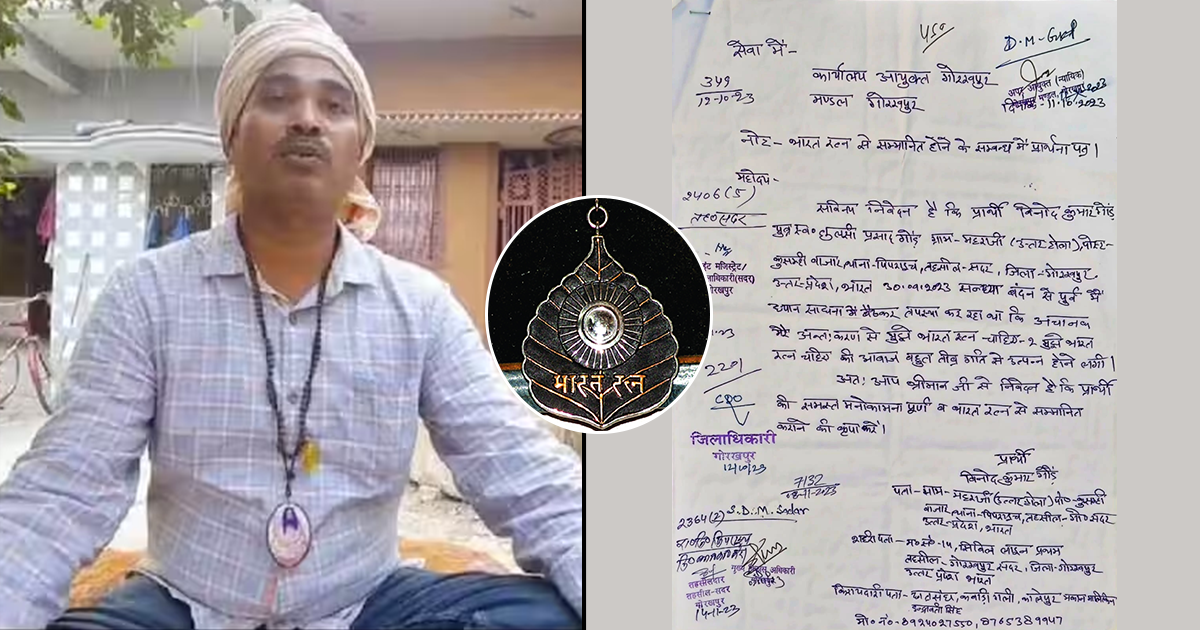 सेवा में-
कार्यालय आयुक्त गोरखपुर
मण्डल गोरखपुर
D.M-
349
12-10-23
दिनांक- 11.10.2023
नोट- भारत रत्न से सम्मानित होने के सम्बन्ध में प्रार्थना पत्र।
महोदय-
2406(S)
तह० सदर
सविनय निवेदन है कि प्रार्थी विनोद कुमार गौंड़
पुत्र स्व० तुलसी प्रसाद गौंड़ ग्राम-महराजी (उत्तर टोला), पोस्ट-
कुसम्ही बाजार, थाना-पिपराइच, तहसील-सदर, जिला-गोरखपुर
उत्तर-प्रदेश, भारत 30.09.2023 सन्ध्या बंदन से पूर्व में
ध्यान साधना में बैठकर तपस्या कर रहा था कि अचानक
मेरे अन्तःकरण से मुझे भारत रत्न चाहिए-2 मुझे भारत
रत्न चाहिए की आवाज बहुत तीव्र गति से उत्पन्न होने लगी।
अतः आप श्रीमान जी से निवेदन है कि प्रार्थी
की समस्त मनोकामना पूर्ण व भारत रत्न से सम्मानित
कराने की कृपा करें।
मजिस्ट्रेट/
धिकारी(सदर)
गोरखपुर
2291
CRO
जिलाधिकारी
गोरखपुर
12/10/23
भारत रत्न
प्रार्थी
विनोद कुमार गौंड़
पता-ग्राम-महराजी (उत्तर टोला) पो०-कुसम्ही
बाजार, थाना-पिपराइच, तहसील-गो० सदर
उत्तर-प्रदेश, भारत
7132
2364(2) S.D.M. Sadar
शहरी पता- म० सं०-14, सिविल लाइन प्रथम
तहसील-गोरखपुर सदर, जिला-गोरखपुर
उत्तर प्रदेश भारत
तहसीलदार
तहसील-सदर
गोरखपुर
14-11-23
किरायेदारी पता- कवाड़ी गली,
मो० नं०-8924027550, 8765389947